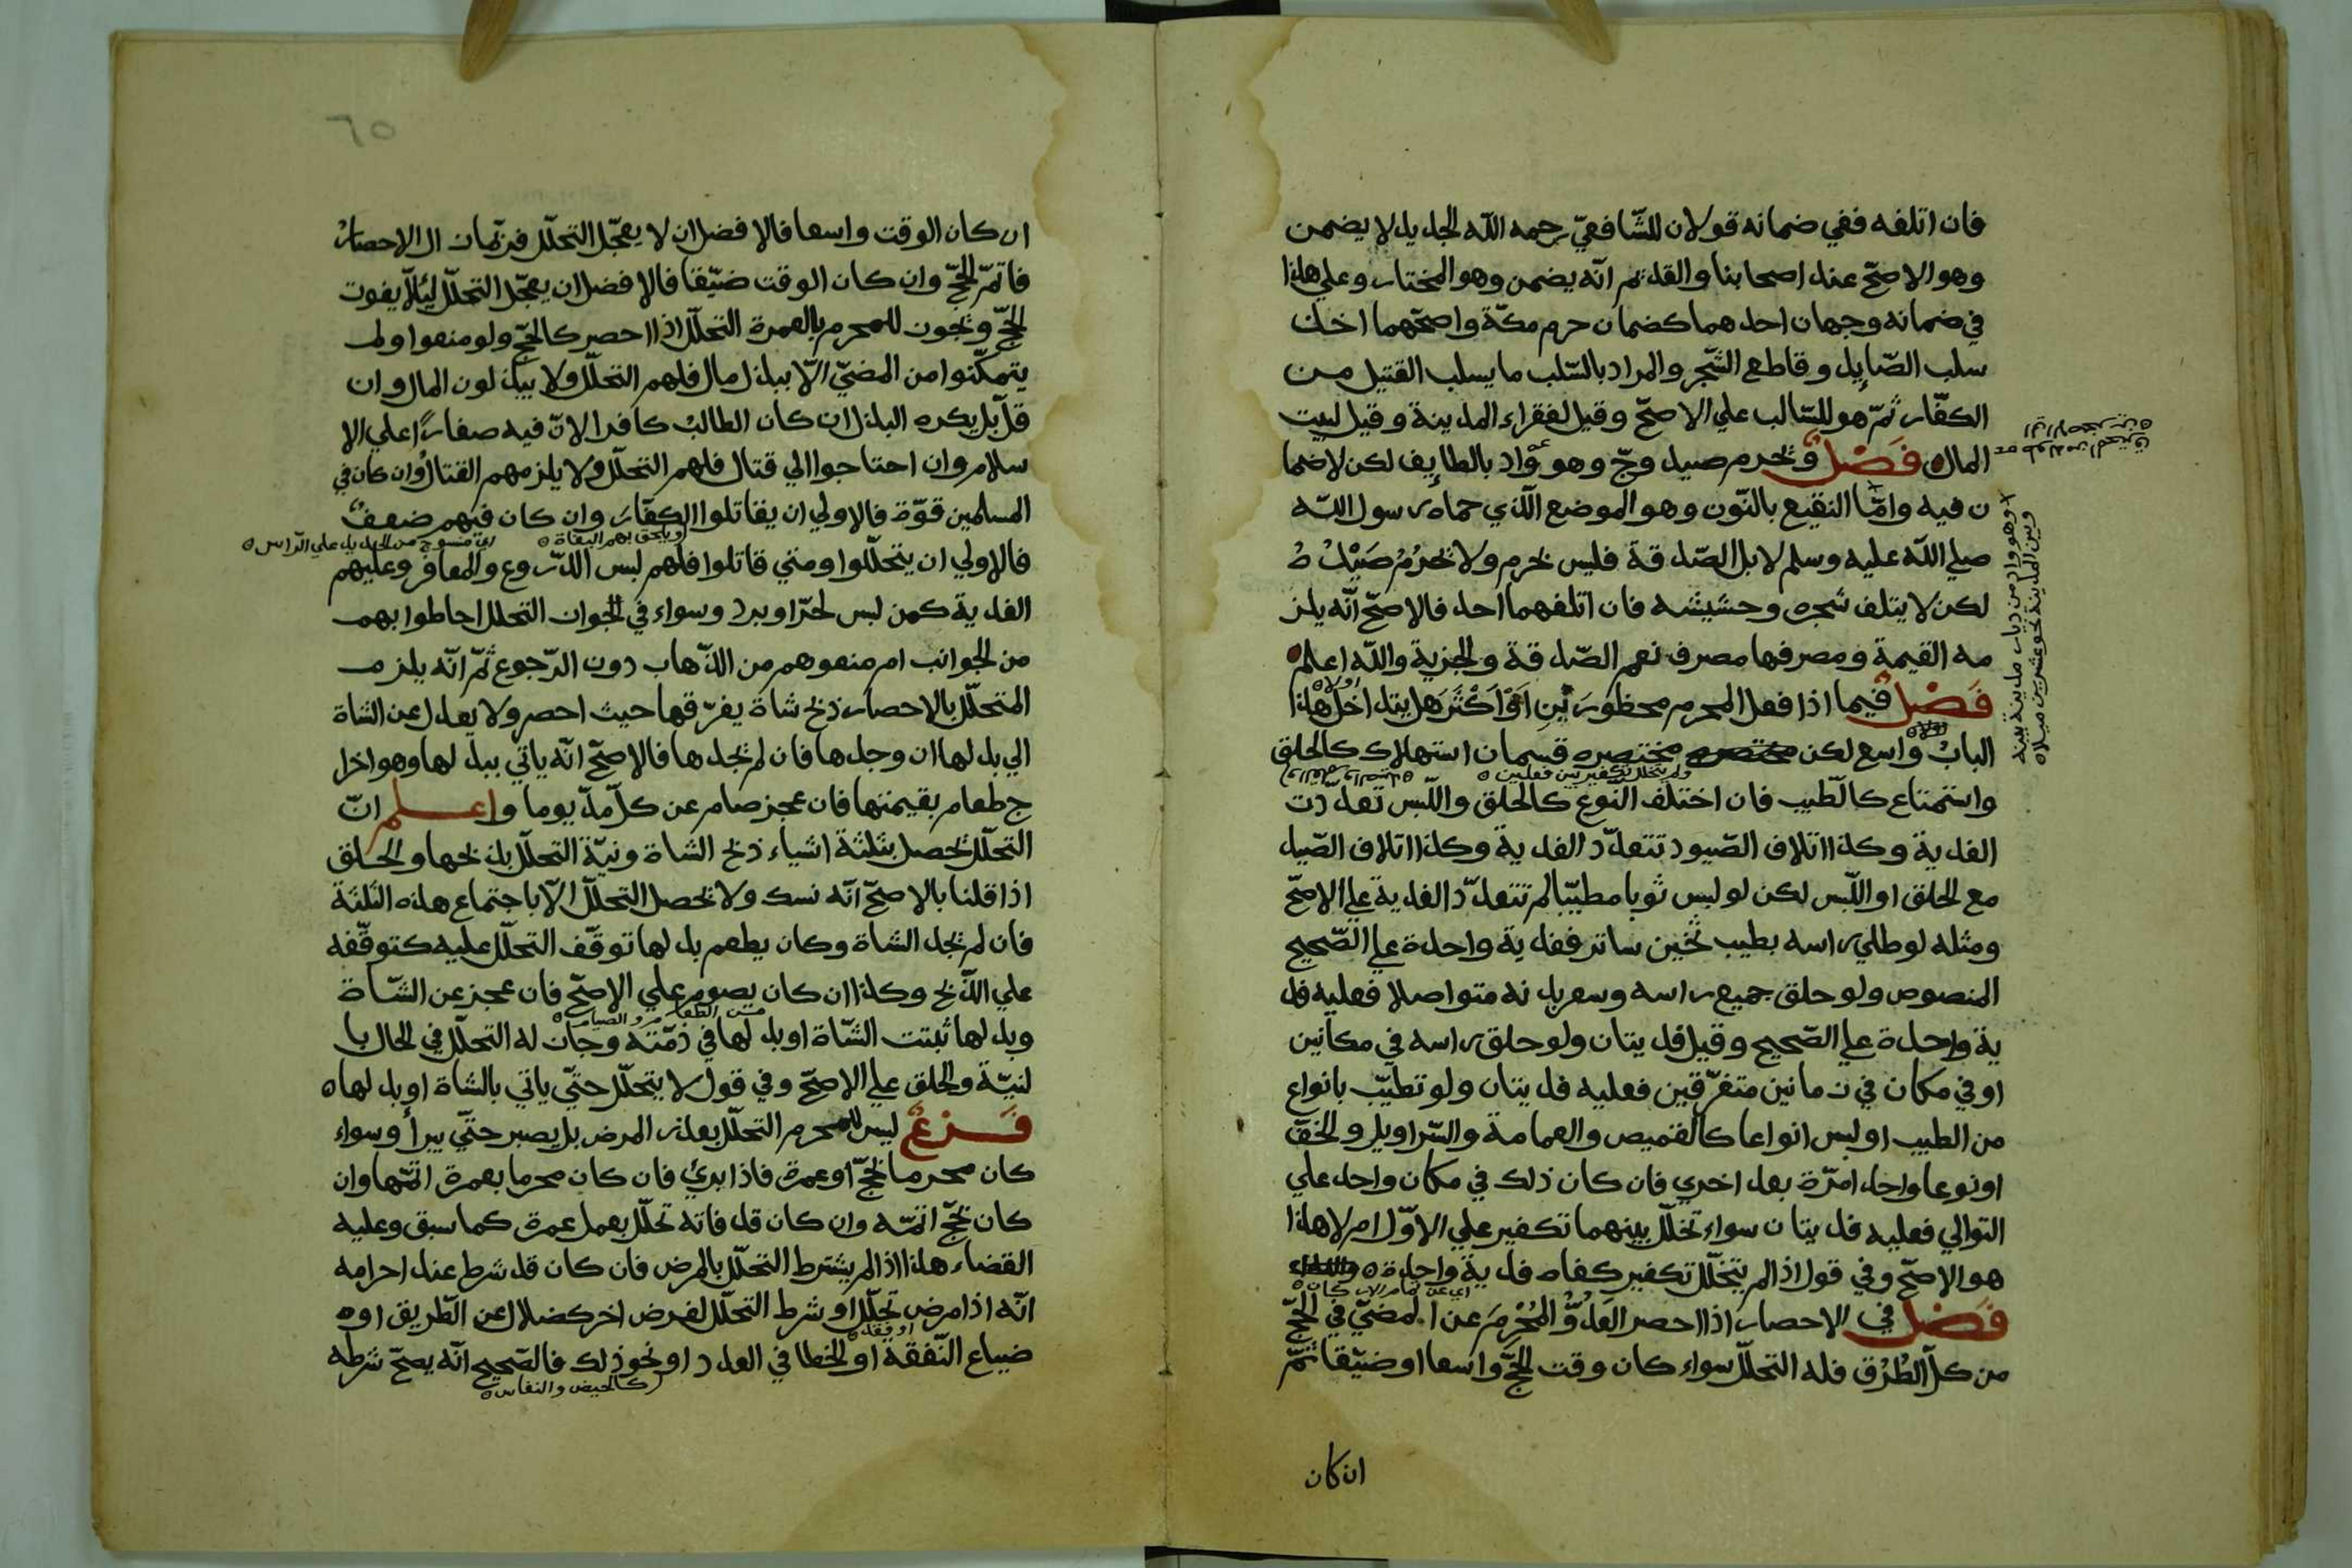 فان اتلفه ففي ضمانه قولان للشّافعيّ رحمه الله الجديد لا يضمن
وهو الاصحّ عند اصحابنا والقديم انّه يضمن وهو المختار وعلي هذا
في ضمانه وجهان احدهما كضمان حرم مكّة واصحّهما اخذ
سلب الصّايد وقاطع الشّجر والمراد بالسّلب ما يسلب القتيل من
الكفّار ثمّ هو للسّالب علي الاصحّ وقيل لفقراء المدينة وقيل لبيت
المال فَصْلٌ ويحرم صيد وجّ وهو واد بالطايف لكن لا ضما
ن فيه وامّا النقيع بالنّون وهو الموضع الّذي حماه رسول الله
صلي الله عليه وسلم لابل الصّدقة فليس بحرم ولا يحرُمُ صَيْدُهُ
لكن لا يتلف شجره وحشيشه فان اتلفهما احد فالاصحّ انّه يلز
مه القيمة ومصرفها مصرف نعم الصّدقة والجزية والله اعلم
فَصْلٌ فيما اذا فعل المحرم محظورَيْنِ اَوْ اَكْثَرَ هل يتداخل هذا
اولا
البابُ واسع لكن مختصره قسمان استهلاك كالحلق
ولم يتخلل تكفير بين فعلين
واستمتاع كالطّيب فان اختلف النّوع كالحلق واللّبس تعدّدت
الفدية وكذا اتلاف الصّيود تتعدّد الفدية وكذا اتلاف الصّيد
مع الحلق او اللّبس لكن لو لبس ثوبا مطيّبا لم تتعدّد الفدية علي الاصحّ
ومثله لو طلي راسه بطيب ثخين ساتر ففدية واحدة علي الصّحيح
المنصوص ولو حلق جميع راسه وشعر بدنه متواصلا فعليه فد
ية واحدة علي الصّحيح وقيل فديتان ولو حلق راسه في مكانين
او في مكان في زمانين متفرّقين فعليه فديتان ولو تطيّب بانواع
من الطيب او لبس انواعا كالقميص والعمامة والسّراويل والخفّ
او نوعا واحدا مرّة بعد اخري فان كان ذلك في مكان واحد علي
التوالي فعليه فديتان سواء تخلّل بينهما تكفير علي الاوّل ام لا هذا
هو الاصحّ وفي قول اذا لم يتخلّل تكفير كفاه فدية واحدة
اي عن تمام الاركان
فَصْلٌ في الاحصار اذا احصر العَدُوُّ المُحْرِمَ عن المضيّ في الحجّ
من كلّ الطُرُق فله التحلّل سواء كان وقت الحجّ واسعا او ضيّقا ثمّ
ان كان
وهو واد من ديار مدينة بينه
وبين المدينة نحو عشرين ميلا
٦٥
ان كان الوقت واسعا فالافضل ان لا يعجّل التحلّل فربّما زال الاحصارُ
فاتمّ الحجّ وان كان الوقت ضيّقا فالافضل ان يعجّل التحلّل ليئلاّ يفوت
الحجّ ويجوز للمحرم بالعمرة التحلّل اذا احصر كالحجّ ولو منعوا ولم
يتمكّنوا من المضيّ الّا ببذل مال فلهم التحلّل ولا يبذلون المال وان
قلّ بل يكره البذل ان كان الطالبُ كافرا لانّ فيه صغاراً علي الا
سلام وان احتاجوا الي قتال فلهم التحلّل ولا يلزمهم القتال وان كان في
المسلمين قوّة فالاولي ان يقاتلوا الكفّارَ وان كان فيهم ضعفٌ
ويلحق بهم البغاة
اي منسوج من الحديد علي الرّاس
فالاولي ان يتحلّلوا ومتي قاتلوا فلهم لبس الدّروع والمغافر وعليهم
الفدية كمن لبس لحرّ او برد وسواء في الجواز التحلل احاطوا بهم
من الجوانب ام منعوهم من الذّهاب دون الرّجوع ثمّ انّه يلزم
المتحلّل بالاحصار ذبح شاة يفرّقها حيث احصر ولا يعدل عن الشاة
الي بدلها ان وجدها فان لم يجدها فالاصحّ انّه ياتي ببدلها وهو اخرا
ج طعام بقيمتها فان عجز صام عن كلّ مدّ يوما واعلم انّ
التحلّل يحصل بثلثة اشياء ذبح الشاة ونيّة التحلّل بذبحها والحلق
اذا قلنا بالاصحّ انّه نسك ولا يحصل التحلّل الّا باجتماع هذه الثلثة
فان لم يجد الشاة وكان يطعم بدلها توقّف التحلّل عليه كتوقّفه
علي الذّبح وكذا ان كان يصوم علي الاصحّ فان عجز عن الشّاة
من الطعام والصيام
وبدلها ثبتت الشّاة او بدلها في ذمّته وجاز له التحلّل في الحال با
لنيّة والحلق علي الاصحّ وفي قول لا يتحلّل حتّي ياتي بالشاة او بدلها
فَرْعٌ ليس للمحرم التحلّل بعذر المرض بل يصبر حتّي يبرأ وسواء
كان محرما بحجّ او عمرة فاذا برئ فان كان محرما بعمرة اتمّها وان
كان بحجّ اتمّه وان كان قد فاته تحلّل بعمل عمرة كما سبق وعليه
القضاء هذا اذا لم يشترط التحلّل بالمرض فان كان قد شرط عند احرامه
انّه اذا مرض تحلّل او شرط التحلّل لغرض اخر كضلال عن الطّريق او
او فقد
ضياع النّفقة او الخطا في العدد او نحو ذلك فالصّحيح انّه يصحّ شرطه
كالحيض والنفاس